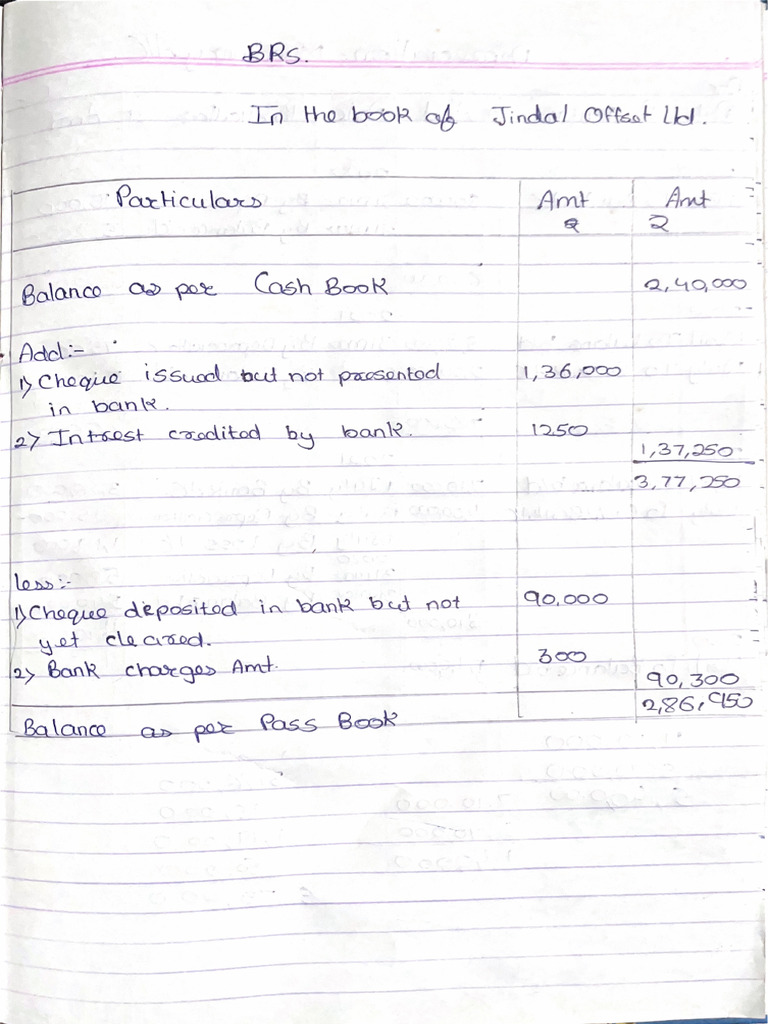 BRS.
In the book of Jindal Offset Ltd.
Particulars Amt Amt
₹ ₹
Balance as per Cash Book 2,40,000
Add:-
1) Cheque issued but not presented 1,36,000
in bank.
2) Intrest credited by bank. 1250
1,37,250
3,77,250
less:-
1) Cheque deposited in bank but not 90,000
yet cleared.
2) Bank charges Amt. 300
90,300
2,86,950
Balance as per Pass Book